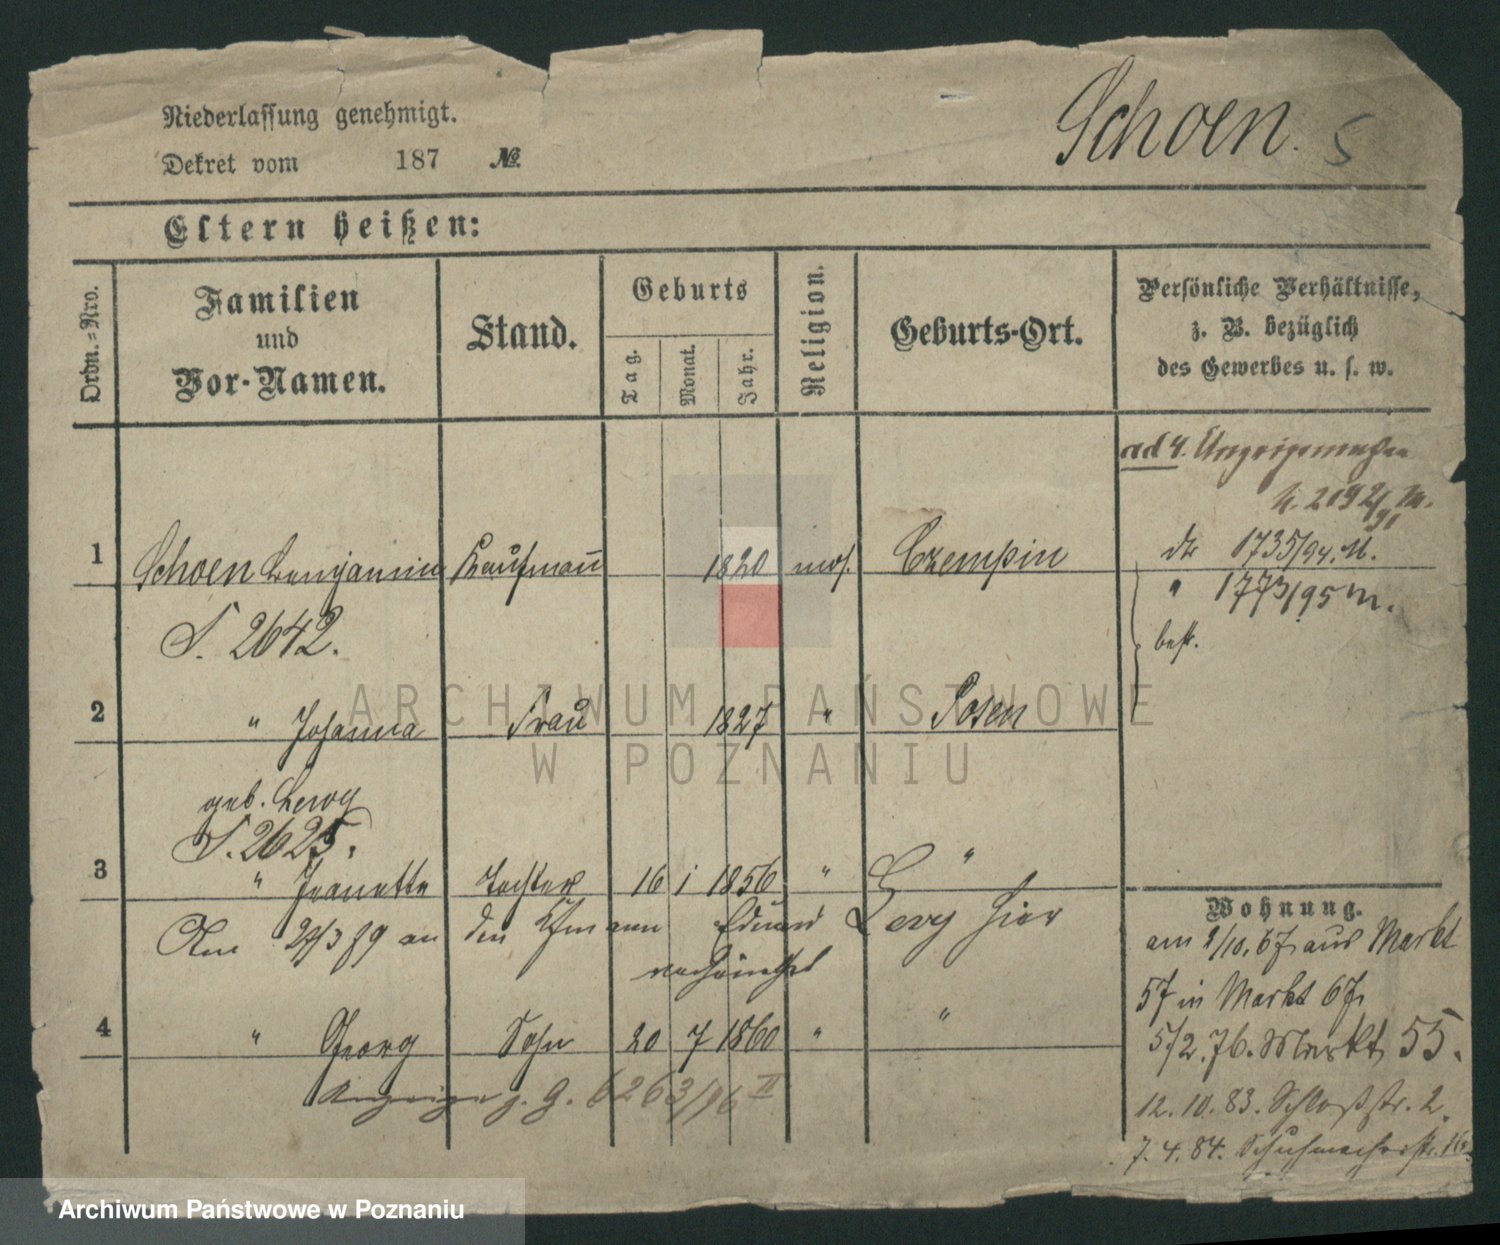 Niederlassung genehmigt.
Schoen. 5
Dekret vom 187 №.
Eltern heißen:
Ordn.-Nro.
Familien
und
Vor-Namen.
Stand.
Geburts
Tag.
Monat.
Jahr.
Religion.
Geburts-Ort.
Persönliche Verhältnisse,
z. B. bezüglich
des Gewerbes u. s. w.
ad 4.
1 Schoen Benjamin Kaufmann 1820 mos. Czempin
1735/94. M.
" 1773/95 M.
best.
S. 2642.
2 " Johanna Frau 1827 " Posen
geb. Lewy
S. 2625.
3 " Jeanette Tochter 16 1 1856 " "
Am 24/3 89 an den Kfmann Eduard Levy hier
verheirathet
4 " Georg Sohn 20 7 1860 " "
Anzeige g. G. 6263/96 II
Wohnung.
am 2/10. 67 aus Markt
57 in Markt 67.
5/2. 76. Markt 55.
12. 10. 83. Schloßstr. 2.
7. 4. 84. Schuhmacherstr. 16.
ARCHIWUM PAŃSTWOWE
W POZNANIU
Archiwum Państwowe w Poznaniu